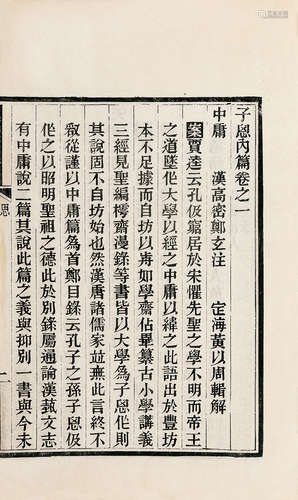 子思內篇卷之一
中庸　漢高密鄭玄注　定海黃以周輯解
案賈逵云孔伋窮居於宋懼先聖之學不明而帝王
之道墜作大學以經之中庸以緯之此語出於豐坊
本不足據而自坊以歬如學齋佔畢纂古小學講義
三經見聖編樗齋漫錄等書皆以大學為子思作則
其說固不自坊始也然漢唐諸儒家竝無此言終不
敢從謹以中庸篇為首鄭目錄云孔子之孫子思伋
作之以昭明聖祖之德此於別錄屬通論漢蓺文志
有中庸說二篇其說此篇之義與抑別一書與今未
思
一